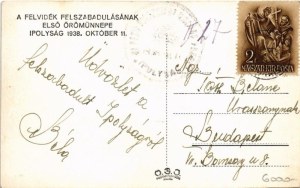 A FELVIDÉK FELSZABADULÁSÁNAK
ELSŐ ÖRÖMÜNNEPE
IPOLYSÁG 1938. OKTÓBER 11.
IPOLYSÁG
2
MAGYAR KIR. POSTA
Üdvözlet a
felszabadult Ipolyságról
Béla
Ngs.
Tóth Béláné
Úrasszonynak
Budapest
u. 8.